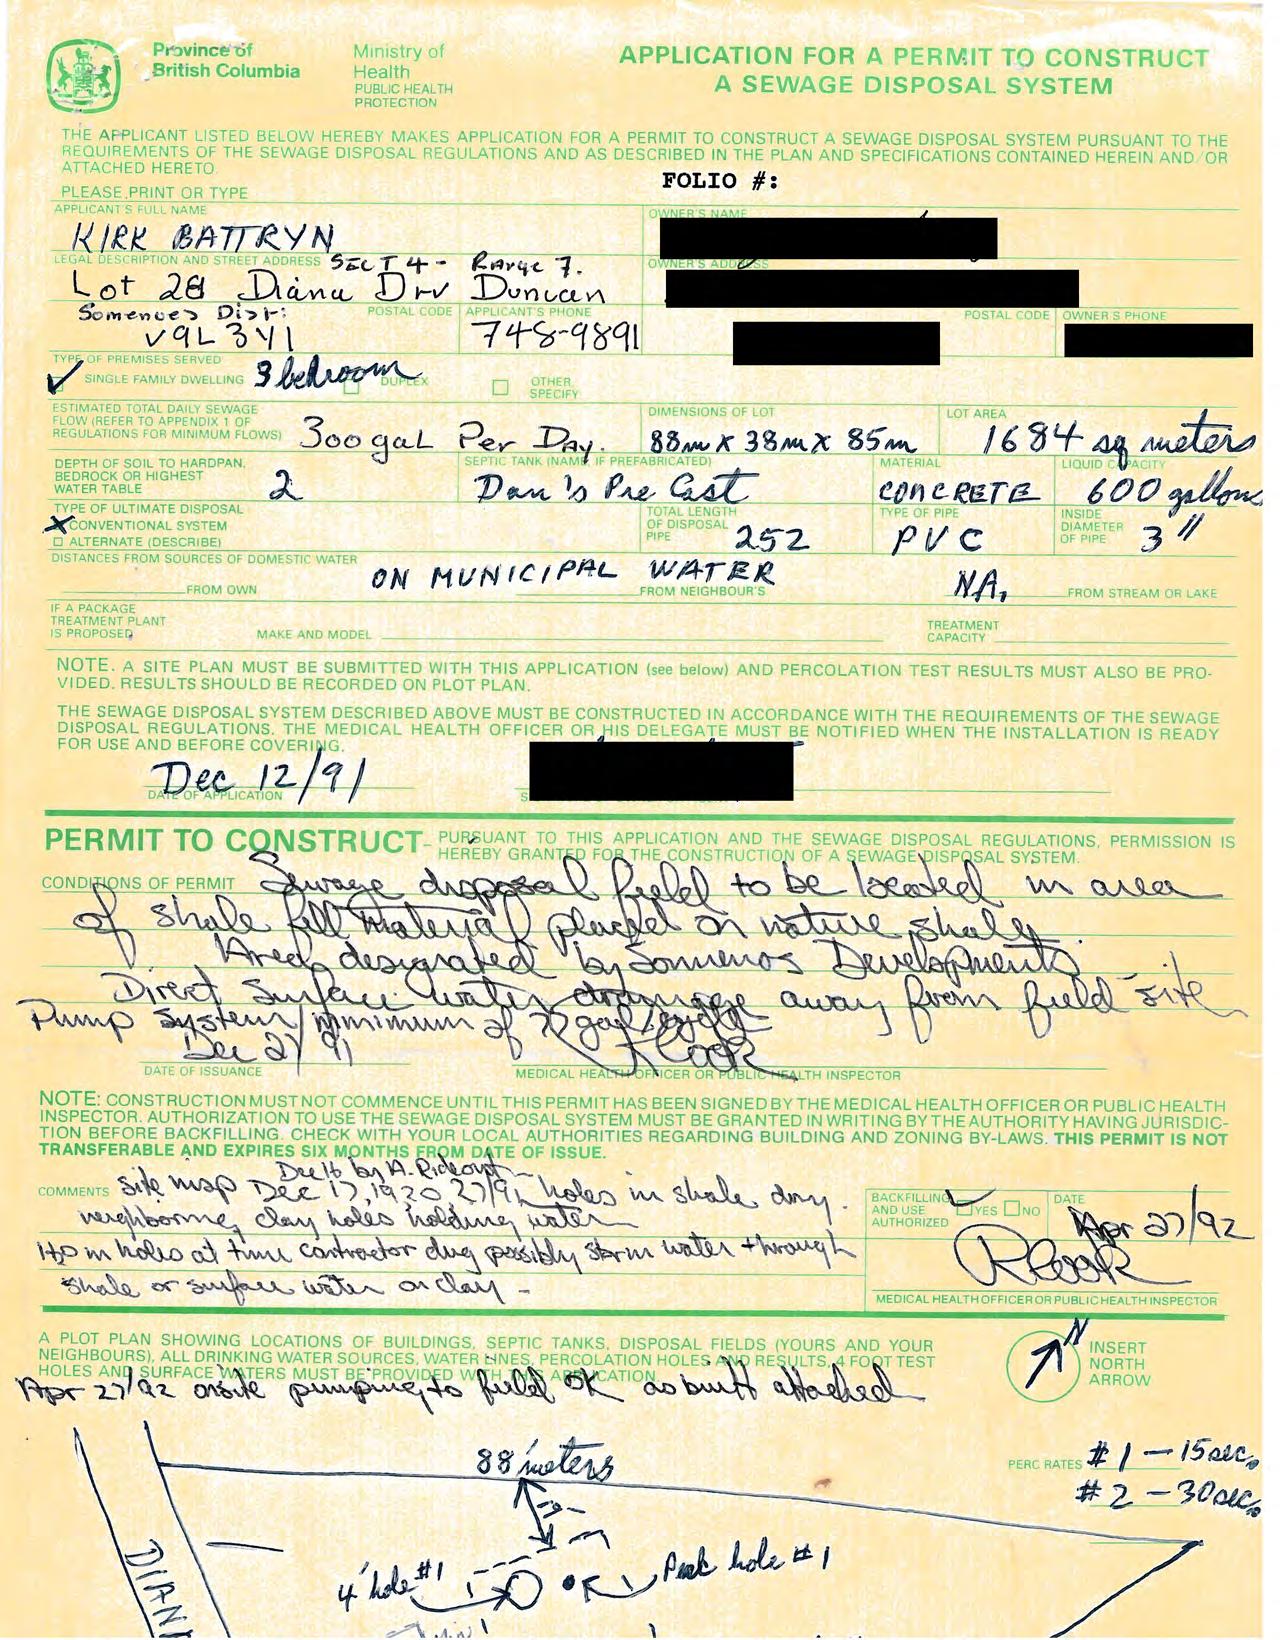 Province of British Columbia
Ministry of Health
PUBLIC HEALTH PROTECTION
APPLICATION FOR A PERMIT TO CONSTRUCT
A SEWAGE DISPOSAL SYSTEM
THE APPLICANT LISTED BELOW HEREBY MAKES APPLICATION FOR A PERMIT TO CONSTRUCT A SEWAGE DISPOSAL SYSTEM PURSUANT TO THE
REQUIREMENTS OF THE SEWAGE DISPOSAL REGULATIONS AND AS DESCRIBED IN THE PLAN AND SPECIFICATIONS CONTAINED HEREIN AND/OR
ATTACHED HERETO.
FOLIO #:
PLEASE PRINT OR TYPE
APPLICANT'S FULL NAME
OWNER'S NAME
KIRK BATTRYN
LEGAL DESCRIPTION AND STREET ADDRESS SECT 4 - Range 7.
OWNER'S ADDRESS
Lot 28 Diana Drv Duncan
Somenos Dist:
POSTAL CODE
APPLICANT'S PHONE
POSTAL CODE
OWNER'S PHONE
V9L 3Y1
748-9891
TYPE OF PREMISES SERVED
SINGLE FAMILY DWELLING 3 bedroom
DUPLEX
OTHER SPECIFY
ESTIMATED TOTAL DAILY SEWAGE
FLOW (REFER TO APPENDIX 1 OF
REGULATIONS FOR MINIMUM FLOWS)
300 gal Per Day.
DIMENSIONS OF LOT
88m X 38m X 85m
LOT AREA
1684 sq meters
DEPTH OF SOIL TO HARDPAN,
BEDROCK OR HIGHEST
WATER TABLE
2
SEPTIC TANK (NAME IF PREFABRICATED)
Dan's Pre Cast
MATERIAL
CONCRETE
LIQUID CAPACITY
600 gallons
TYPE OF ULTIMATE DISPOSAL
X CONVENTIONAL SYSTEM
ALTERNATE (DESCRIBE)
TOTAL LENGTH
OF DISPOSAL
PIPE
252
TYPE OF PIPE
PVC
INSIDE
DIAMETER
OF PIPE
3"
DISTANCES FROM SOURCES OF DOMESTIC WATER
ON MUNICIPAL WATER
NA,
FROM OWN
FROM NEIGHBOUR'S
FROM STREAM OR LAKE
IF A PACKAGE
TREATMENT PLANT
IS PROPOSED
MAKE AND MODEL
TREATMENT
CAPACITY
NOTE. A SITE PLAN MUST BE SUBMITTED WITH THIS APPLICATION (see below) AND PERCOLATION TEST RESULTS MUST ALSO BE PRO-
VIDED. RESULTS SHOULD BE RECORDED ON PLOT PLAN.
THE SEWAGE DISPOSAL SYSTEM DESCRIBED ABOVE MUST BE CONSTRUCTED IN ACCORDANCE WITH THE REQUIREMENTS OF THE SEWAGE
DISPOSAL REGULATIONS. THE MEDICAL HEALTH OFFICER OR HIS DELEGATE MUST BE NOTIFIED WHEN THE INSTALLATION IS READY
FOR USE AND BEFORE COVERING.
Dec 12/91
DATE OF APPLICATION
PERMIT TO CONSTRUCT - PURSUANT TO THIS APPLICATION AND THE SEWAGE DISPOSAL REGULATIONS, PERMISSION IS
HEREBY GRANTED FOR THE CONSTRUCTION OF A SEWAGE DISPOSAL SYSTEM.
CONDITIONS OF PERMIT Sewage disposal field to be located in area
of shale fill material placed on nature shale.
Area designated by Sommenos Developments
Direct surface water drainage away from field site
Pump System/minimum of gal/
Dec 27/91
R Cook
DATE OF ISSUANCE
MEDICAL HEALTH OFFICER OR PUBLIC HEALTH INSPECTOR
NOTE: CONSTRUCTION MUST NOT COMMENCE UNTIL THIS PERMIT HAS BEEN SIGNED BY THE MEDICAL HEALTH OFFICER OR PUBLIC HEALTH
INSPECTOR. AUTHORIZATION TO USE THE SEWAGE DISPOSAL SYSTEM MUST BE GRANTED IN WRITING BY THE AUTHORITY HAVING JURISDIC-
TION BEFORE BACKFILLING. CHECK WITH YOUR LOCAL AUTHORITIES REGARDING BUILDING AND ZONING BY-LAWS. THIS PERMIT IS NOT
TRANSFERABLE AND EXPIRES SIX MONTHS FROM DATE OF ISSUE.
Dec 16 by A. Rideout -
COMMENTS site map Dec 17, 19 20 27/91 holes in shale dry.
neighboring clay holes holding water
H2O in holes at time contractor dug possibly storm water through
shale or surface water on clay -
BACKFILLING
AND USE
AUTHORIZED
YES NO
DATE
Apr 27/92
R Cook
MEDICAL HEALTH OFFICER OR PUBLIC HEALTH INSPECTOR
A PLOT PLAN SHOWING LOCATIONS OF BUILDINGS, SEPTIC TANKS, DISPOSAL FIELDS (YOURS AND YOUR
NEIGHBOURS), ALL DRINKING WATER SOURCES, WATER LINES, PERCOLATION HOLES AND RESULTS, 4 FOOT TEST
HOLES AND SURFACE WATERS MUST BE PROVIDED WITH THIS APPLICATION.
N
INSERT
NORTH
ARROW
Apr 27/92 onsite pumping to field OK as built attached
88 meters
PERC RATES #1 - 15 sec.
#2 - 30 sec.
DIAN
4' hole #1
Perk hole #1